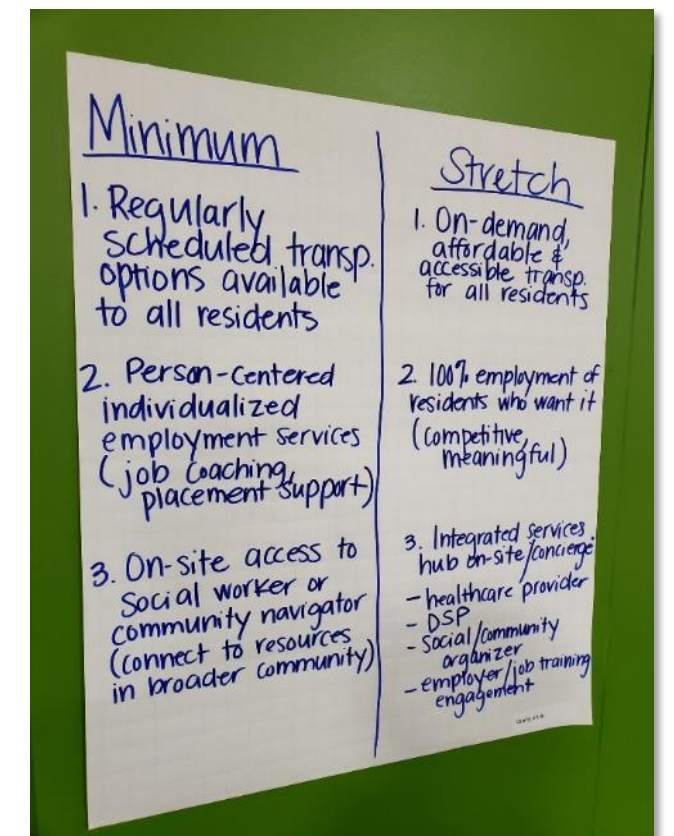 Minimum
1. Regularly
scheduled transp.
options available
to all residents
2. Person-Centered
individualized
employment services
(job coaching,
placement support)
3. On-site access to
social worker or
community navigator
(connect to resources
in broader community)
Stretch
1. On-demand,
affordable &
accessible transp.
for all residents
2. 100% employment of
residents who want it
(competitive,
meaningful)
3. Integrated services
hub on-site/concierge
- healthcare provider
- DSP
- Social/community
organizer
- employer/job training
engagement